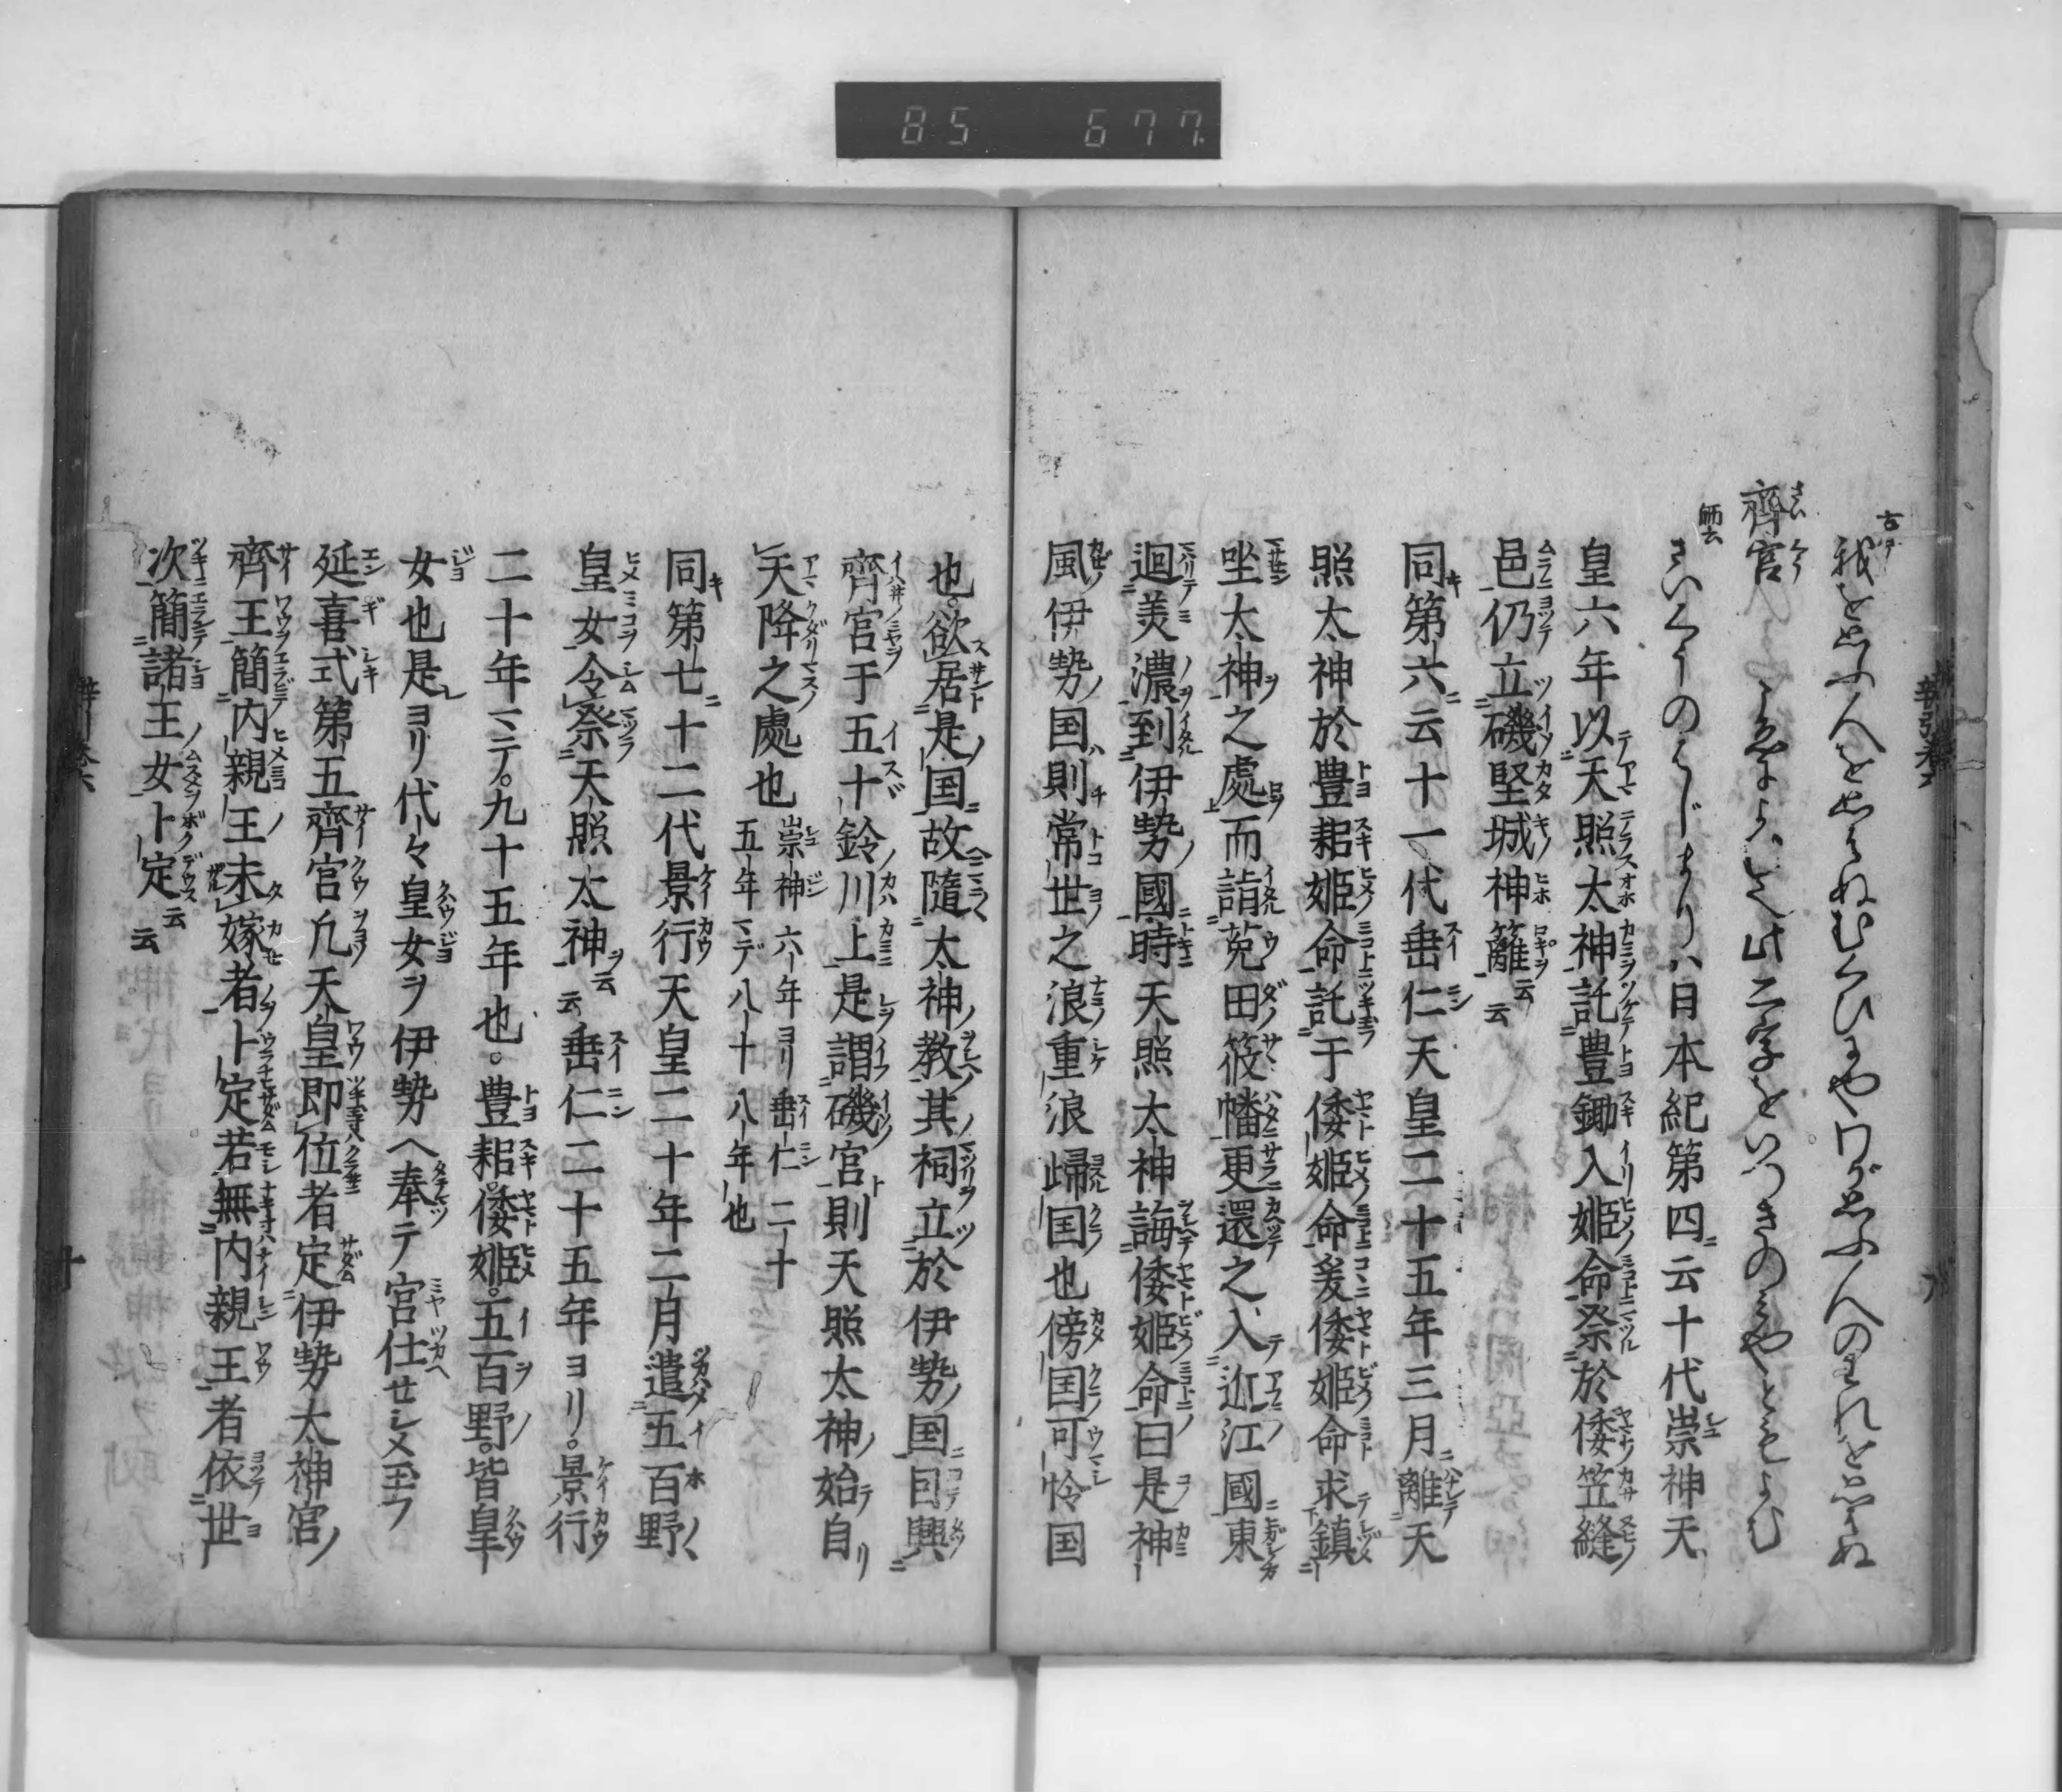 85 677
古今 我を思ふ人を思はぬむくひにやわが思ふ人の我を思はぬ
齊宮 こゑによみいへ此二字をいつきのみやともよむ
師云 さいくうのはじまりハ日本紀第四云十代崇神天
皇六年以天照太神託豊鋤入姫命祭於倭笠縫
邑仍立磯堅城神籬云云
同第六云十一代垂仁天皇二十五年三月離天
照太神於豊耜姫命託于倭姫命爰倭姫命求鎮
坐太神之處而詣菟田筱幡更還之入近江國東
迴美濃到伊勢國時天照太神誨倭姫命曰是神
風伊勢国則常世之浪重浪歸国也傍国可怜国
也欲居是国故隨太神教其祠立於伊勢国因興
齊宮于五十鈴川上是謂磯宮則天照太神始自
天降之處也 崇神六年ヨリ垂仁二十
五年マデ八十八年也
同第七十二代景行天皇二十年二月遣五百野
皇女令祭天照太神云云垂仁二十五年ヨリ景行
二十年マテ九十五年也豊耜倭姫五百野皆皇
女也是ヨリ代々皇女ヲ伊勢ヘ奉テ宮仕セシメ玉フ
延喜式第五齊宮凡天皇即位者定伊勢太神宮ノ
齊王簡内親王未嫁者卜定若無内親王者依世
次簡諸王女卜定云云
十